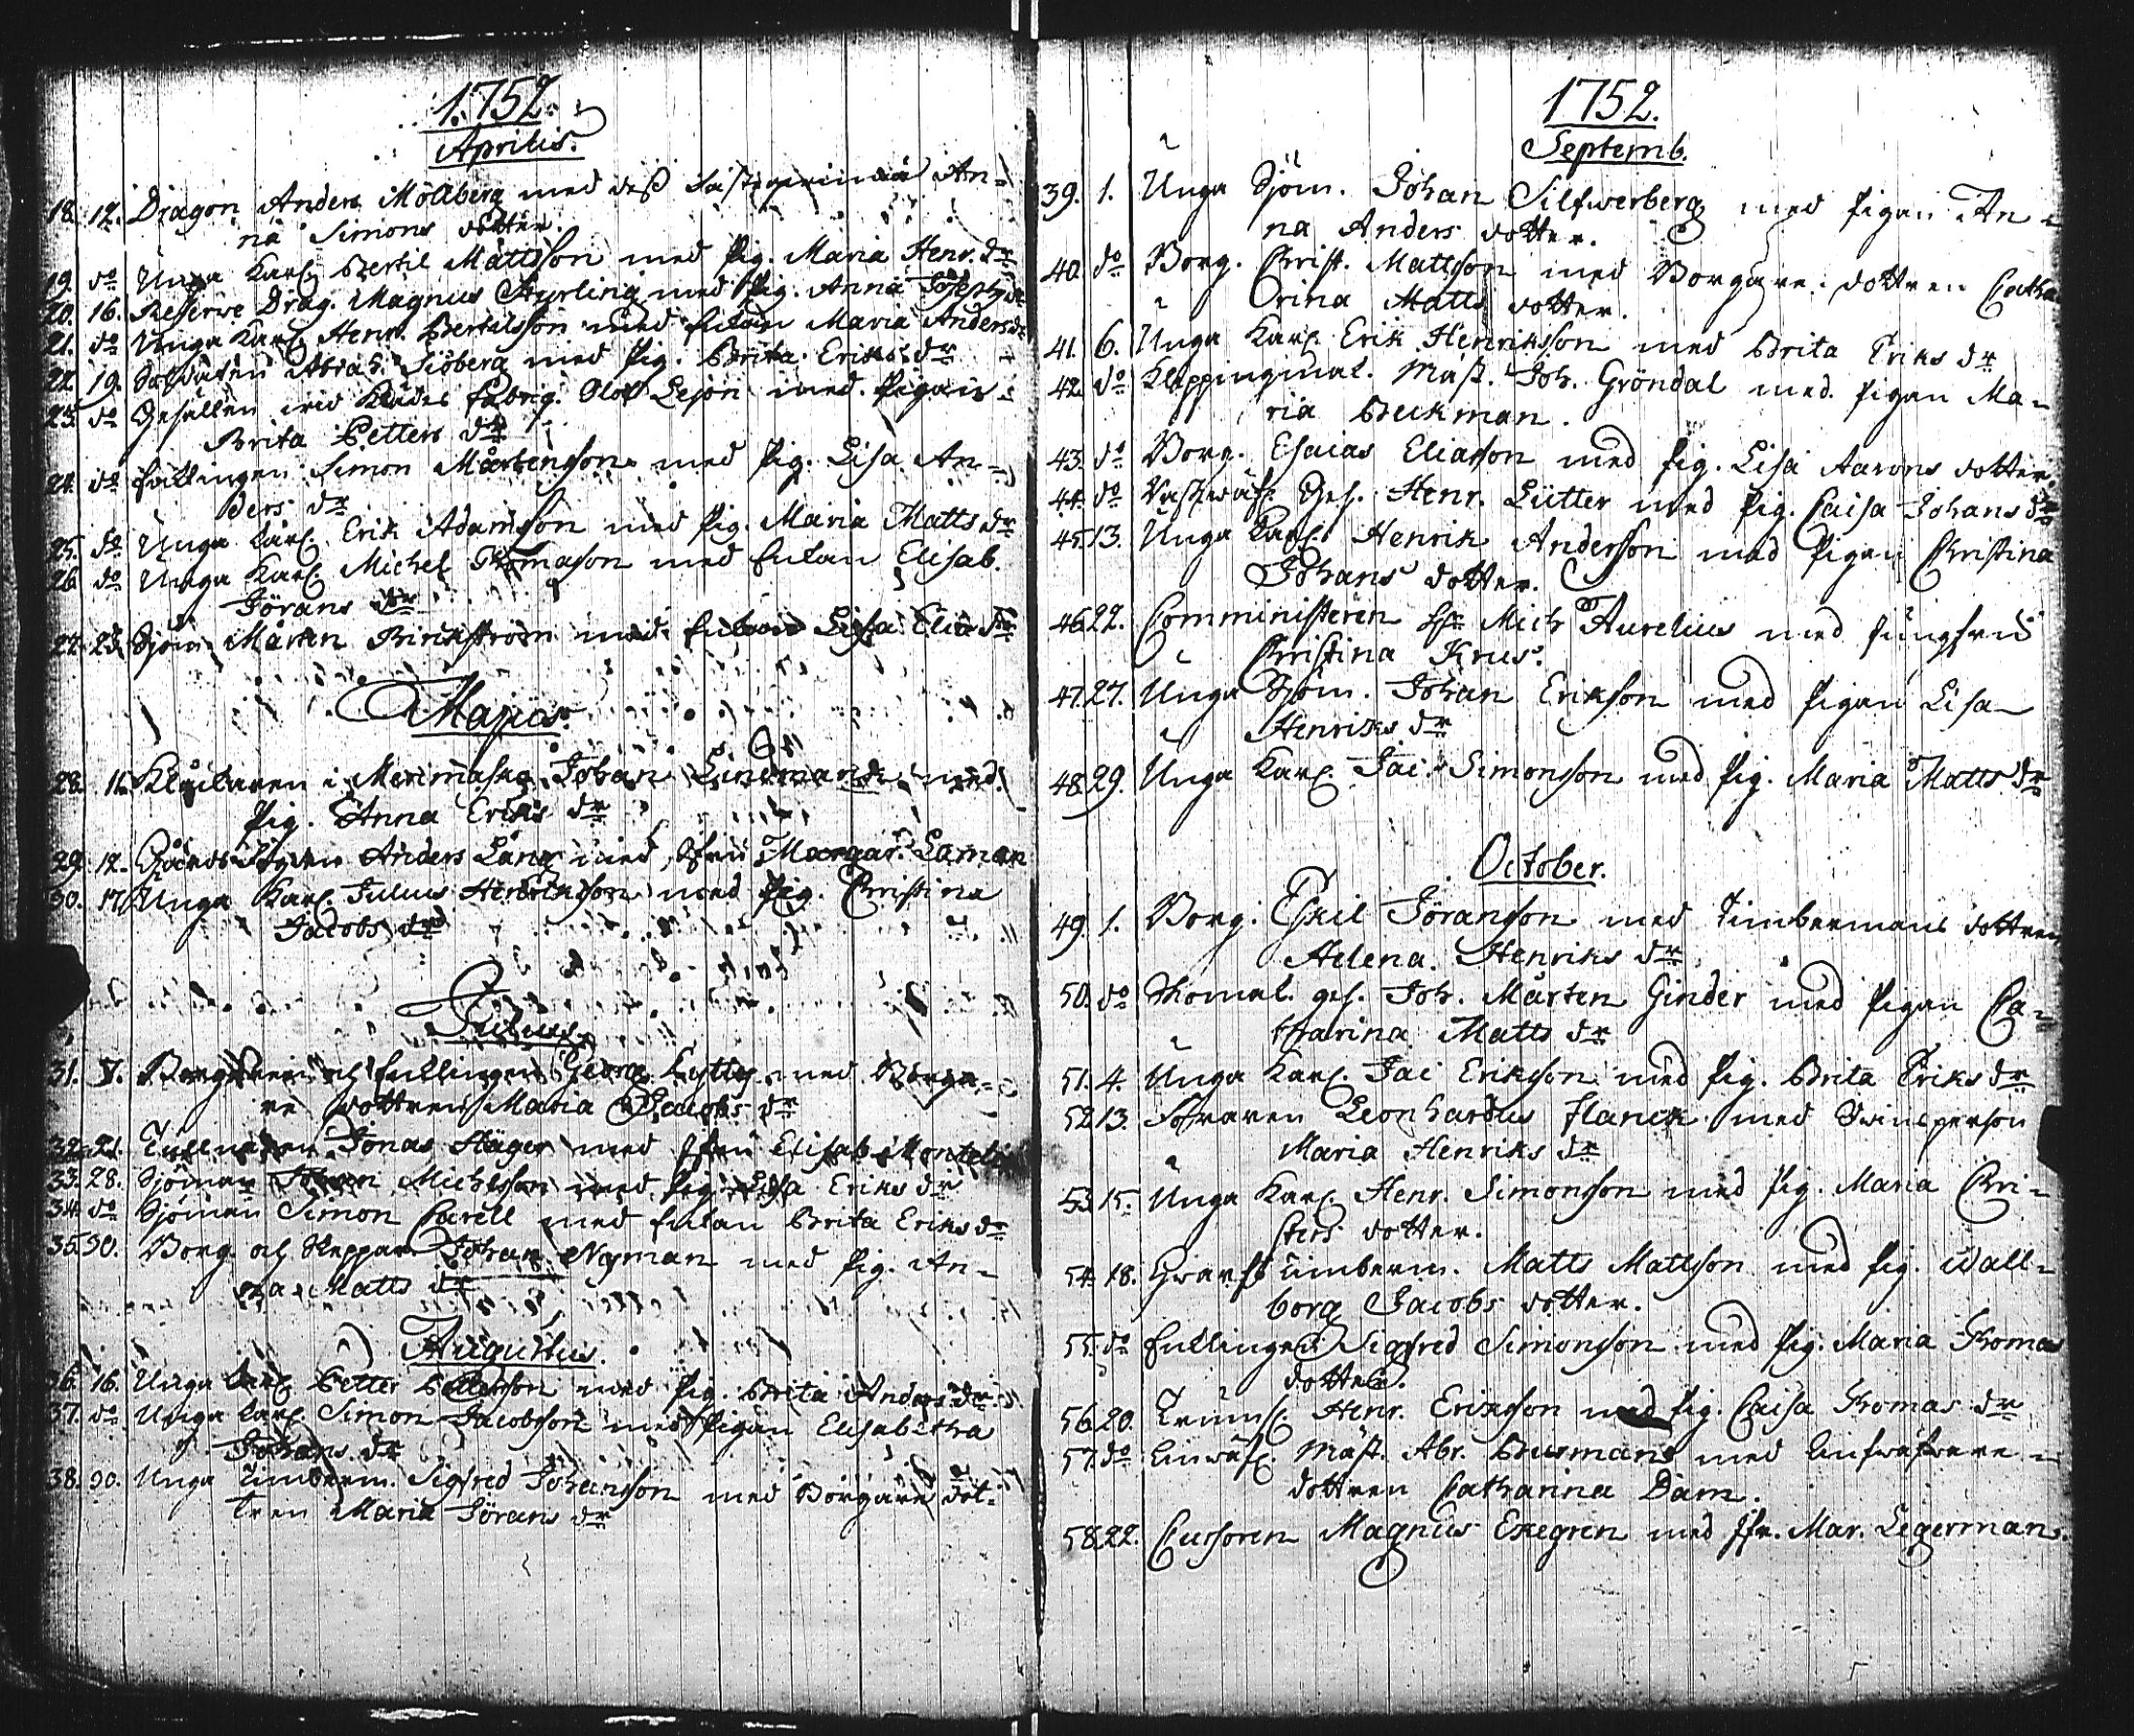 1752.
Aprilis.
18. 12. Dragon Anders Mölberg med dess fästeqvinna An=
na Simons dotter.
19. do Unga Karl. Bertil Mattsson med Pig. Maria Henr. dr
20. 16. Reserve Drag. Magnus Hyrling med Pig. Anna Josephs dr
21. do Unga Karl. Henr. Bertilsson med Enkan Maria Anders dr
22. 19. Soldaten Abrah. Siöberg med Pig. Brita Eriks dr
23. do Gesällen wid Klädes fabriq. Olof Lejon med Pigan
Brita Petters dr
24. do Enklingen Simon Mårtensson med Pig. Lisa An=
ders dr
25. do Unga Karl. Erik Adamsson med Pig. Maria Matts dr
26. do Unga Karl. Michel Thomasson med Enkan Elisab.
Jörans dr
27. 23. Sjöm. Mårten Brinkström med Enkan Lisa Elias dr
Majus.
28. 11. Klåckaren i Merimasku Johan Lineman med
Pig. Anna Eriks dr
29. 12. Anders Lång med Jfru Margar. Laman
30. 17. Unga Karl. Julius Henriksson med Pig. Christina
Jacobs dr
Julius.
31. 5. Borgaren och Enklingen Georg med Borga=
re dottren Maria Jacobs dr
32. 21. Jonas Häger med Jfru Elisab.
33. 28. Sjöman Johan Michelsson med Pig. Lisa Eriks dr
34. do Sjöman Simon Carell med Enkan Brita Eriks dr
35. 30. Borg. och Skeppar. Johan Nyman med Pig. An=
na Matts dr
Augustus.
36. 16. Unga Karl. Petter Pettersson med Pig. Brita Anders dr
37. do Unga Karl. Simon Jacobsson med Pigan Elisabetha
Johans dr
38. 30. Unga Timberm. Sigfred Johansson med Borgare dot=
tren Maria Jörans dr
1752.
Septemb.
39. 1. Unga Sjöm. Johan Silfwerberg med Pigan An=
na Anders dotter.
40. do Borg. Christ. Mattsson med Borgare dottren Catha
rina Matts dotter.
41. 6. Unga Karl. Erik Henriksson med Brita Eriks dr
42. do Mäst. Joh. Gröndal med Pigan Ma=
ria Beckman.
43. do Borg. Esaias Eliasson med Pig. Lisa Aarons dotter
44. do Ges. Henr. Lütter med Pig. Caisa Johans dr
45. 13. Unga Karl. Henrik Andersson med Pigan Christina
Johans dotter.
46. 22. Comministeren Hr Mich Aurelius med Jungfru
Christina Krus.
47. 27. Unga Sjöm. Johan Eriksson med Pigan Lisa
Henriks dr
48. 29. Unga Karl. Jac. Simonsson med Pig. Maria Matts dr
October.
49. 1. Borg. Eskil Joransson med Timbermans dottren
Helena Henriks dr
50. do ges. Joh. Mårten Ginder med Pigan Ca=
tharina Matts dr
51. 4. Unga Karl. Jac Eriksson med Pig. Brita Eriks dr
52. 13. Leonhardus Flanck med Qwinsperson
Maria Henriks dr
53. 15. Unga Karl. Henr. Simonsson med Pig. Maria Chri=
sters dotter.
54. 18. timberm. Matts Mattsson med Pig. Wall=
borg Jacobs dotter.
55. do Enklingen Sigfred Simonsson med Pig. Maria Thomas
dotter.
56. 20. Henr. Eriksson med Pig. Caisa Thomas dr
57. do Linwäf. Mäst. Abr. Busman med Linwäfware
dottren Catharina Dam.
58. 22. Cursoren Magnus Ekegren med Jfr. Mar. Legerman.